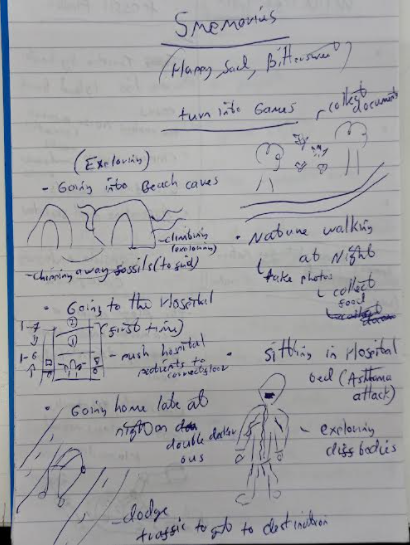 5 memories
(Happy, Sad, Bittersweet)
turn into Games
collect
documents
(Exploring)
- Going into Beach caves
climbing
(exploring)
- chipping away fossils (to find)
• Nature walking
at Night
take photos
collect
food
• Going to the Hospital
(first time)
1-7
1-6
2
1
- push hospital
patients to
correct floor
• Sitting in Hospital
bed (Asthma
attack)
- exploring
bodies
• Going home late at
night on
double decker
bus
- dodge
traffic to get to destination